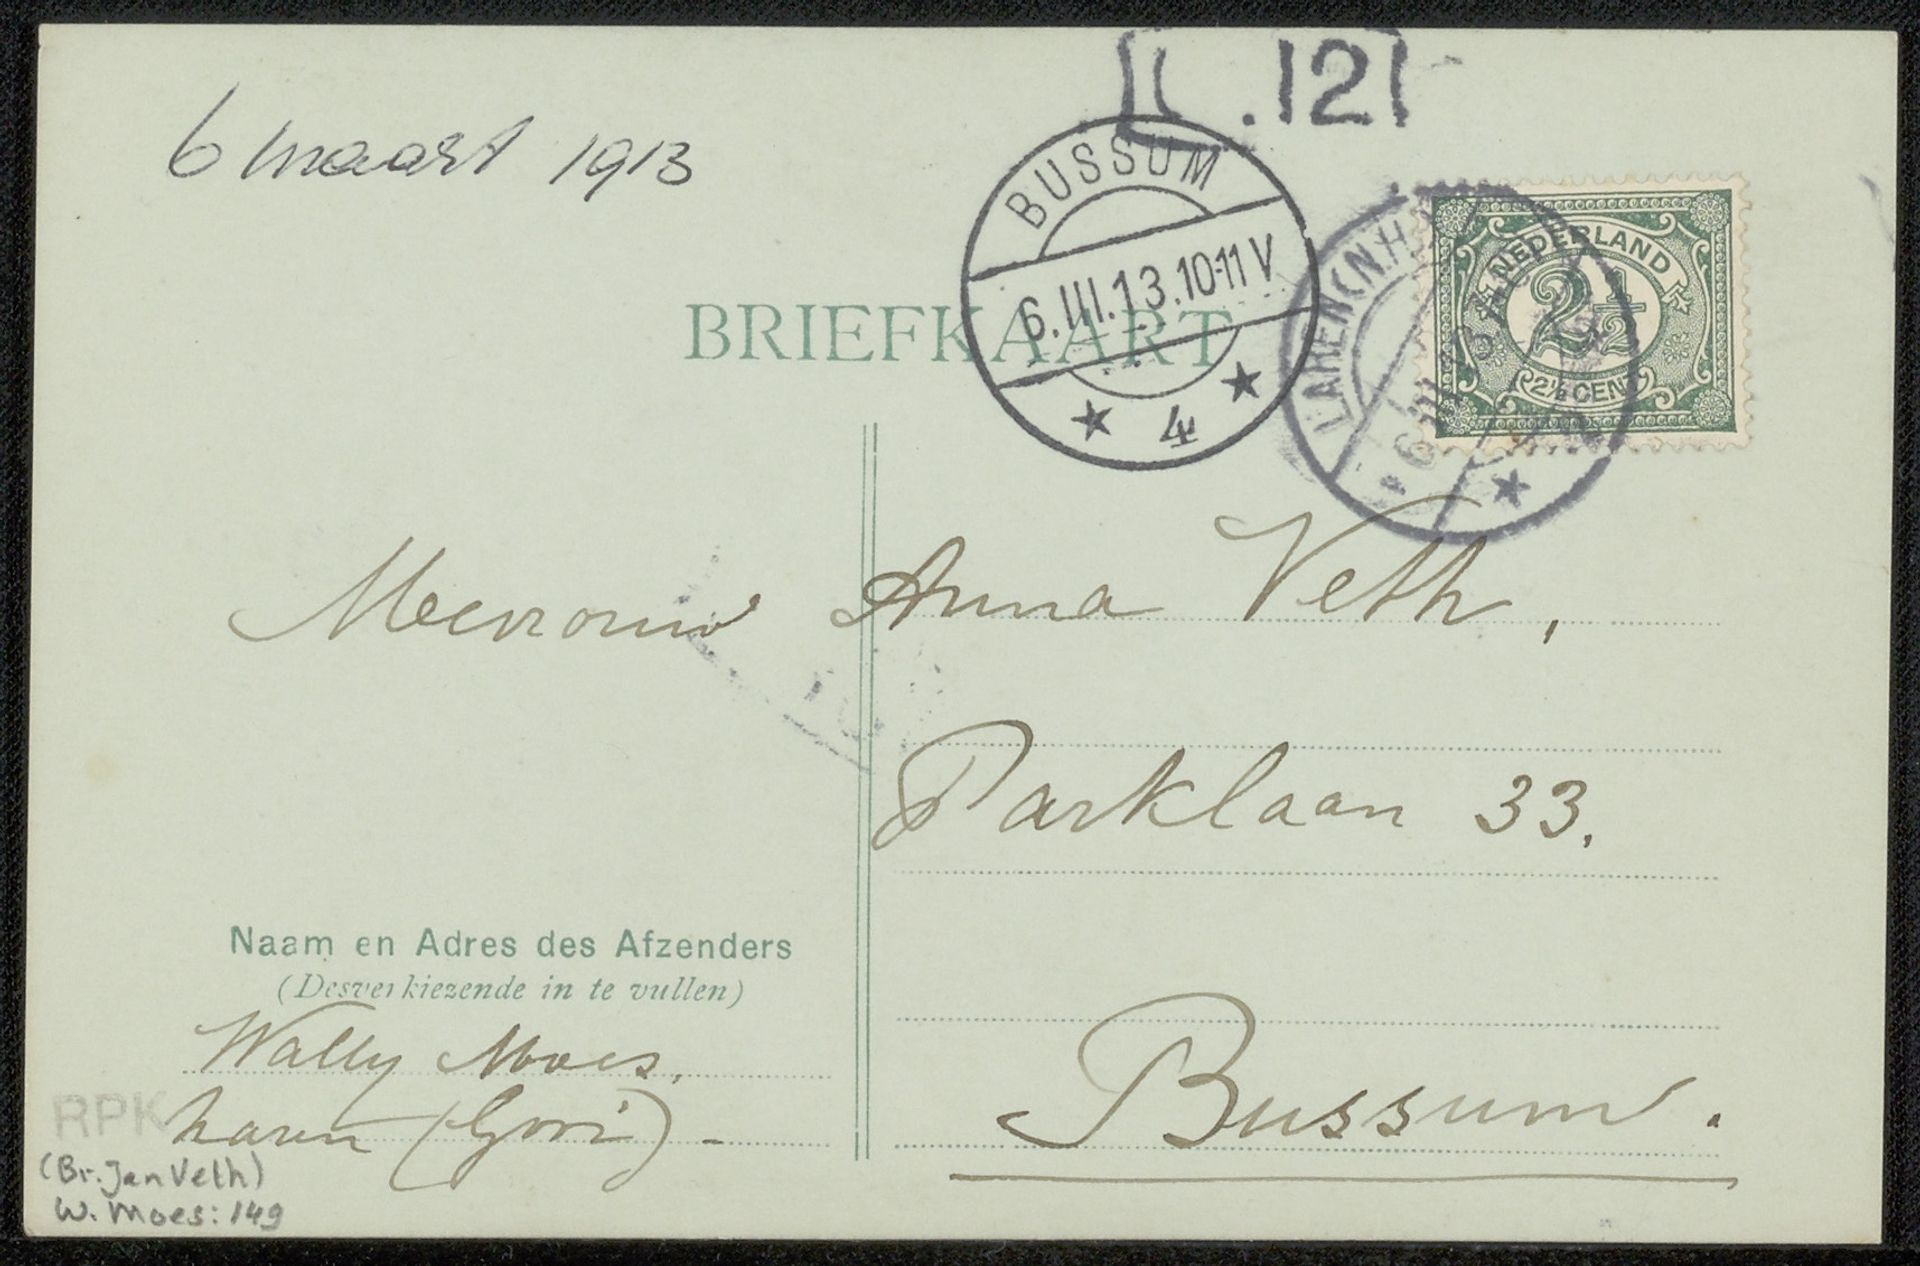 .12
6 maart 1913
BUSSUM
6.III.13.10-11V
4
LAREN (N.H.)
NEDERLAND
2½
2½ CENT
BRIEFKAART
Mevrouw Anna Veth,
Parklaan 33.
Bussum.
Naam en Adres des Afzenders
(Desverkiezende in te vullen)
Wally Moes.
Laren (Gooi) -
RPK
(Br. Jan Veth)
W. Moes: 149